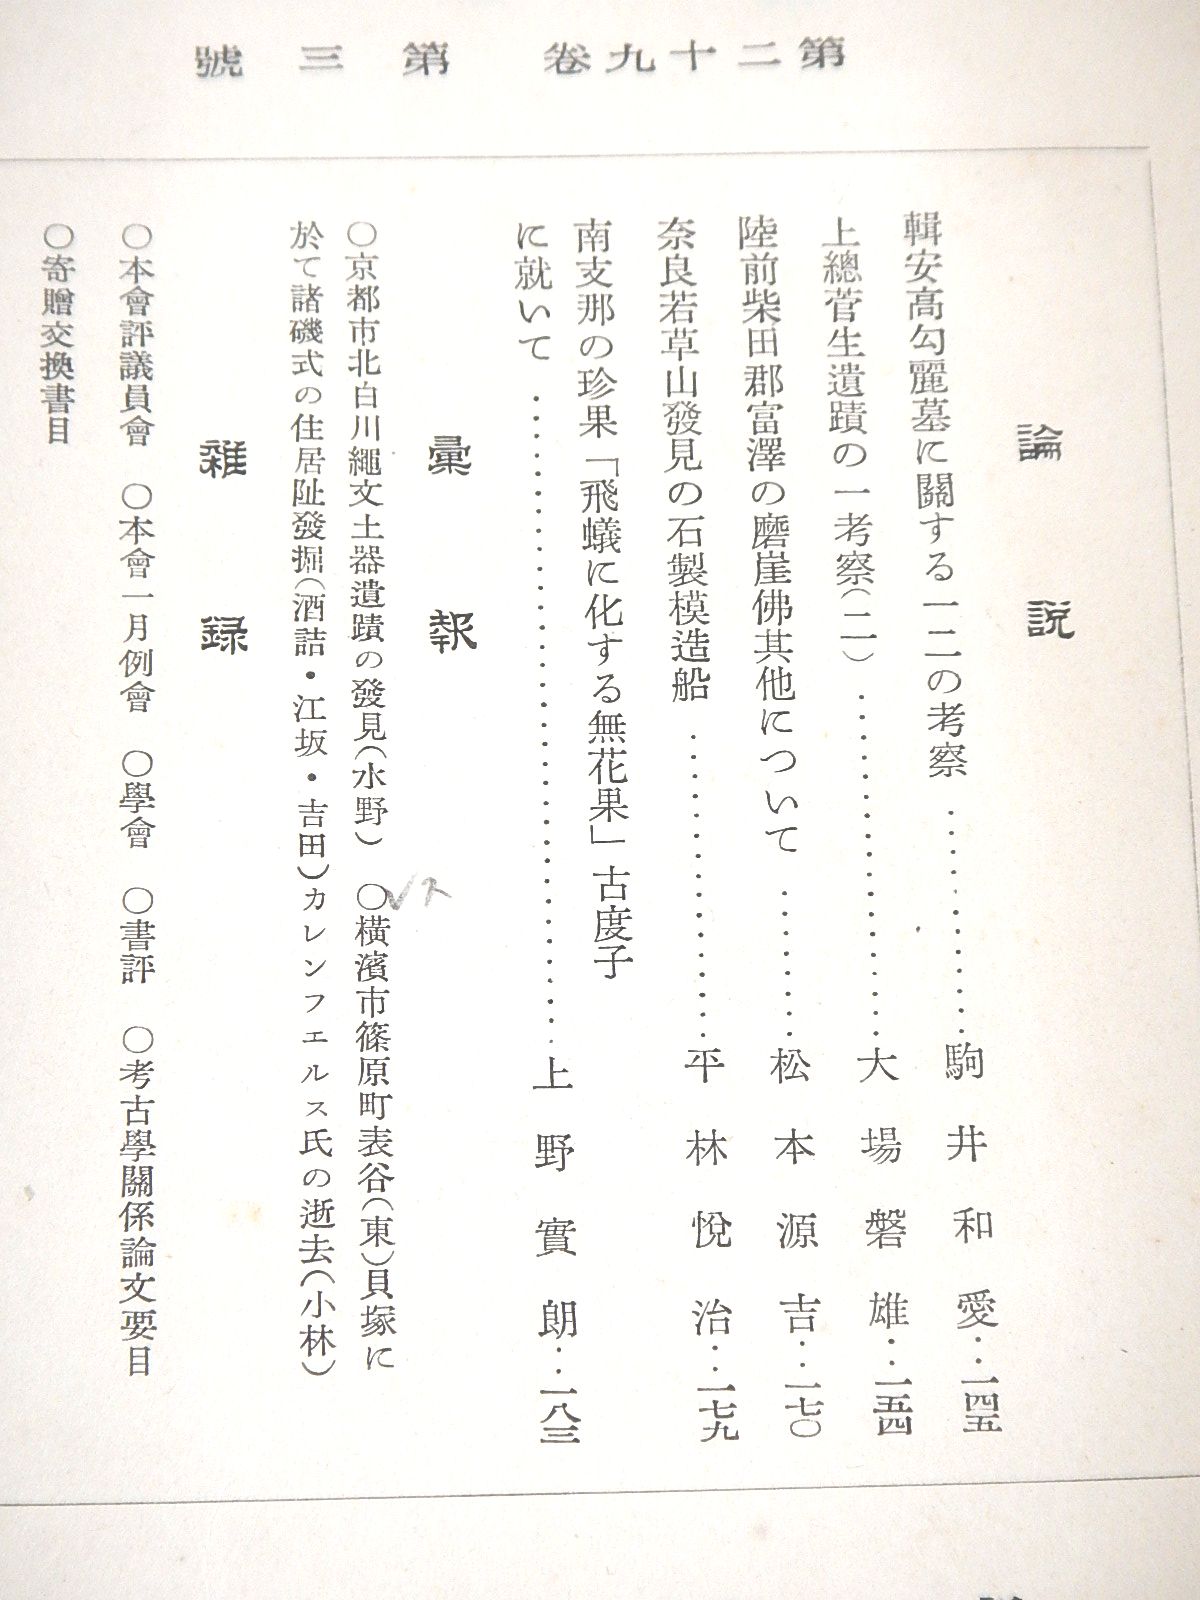 第二十九卷　第三號
論說
輯安高勾麗墓に關する一二の考察……駒井和愛‥一四五
上總菅生遺蹟の一考察(二)……大場磐雄‥一五四
陸前柴田郡富澤の磨崖佛其他について……松本源吉‥一七〇
奈良若草山發見の石製模造船……平林悅治‥一七九
南支那の珍果「飛蟻に化する無花果」古度子
に就いて……上野實朗‥一八三
彙報
〇京都市北白川繩文土器遺蹟の發見(水野)　〇橫濱市篠原町表谷(東)貝塚に
於て諸磯式の住居阯發掘(酒詰・江坂・吉田)カレンフエルス氏の逝去(小林)
雜録
〇本會評議員會　〇本會一月例會　〇學會　〇書評　〇考古學關係論文要目
〇寄贈交換書目